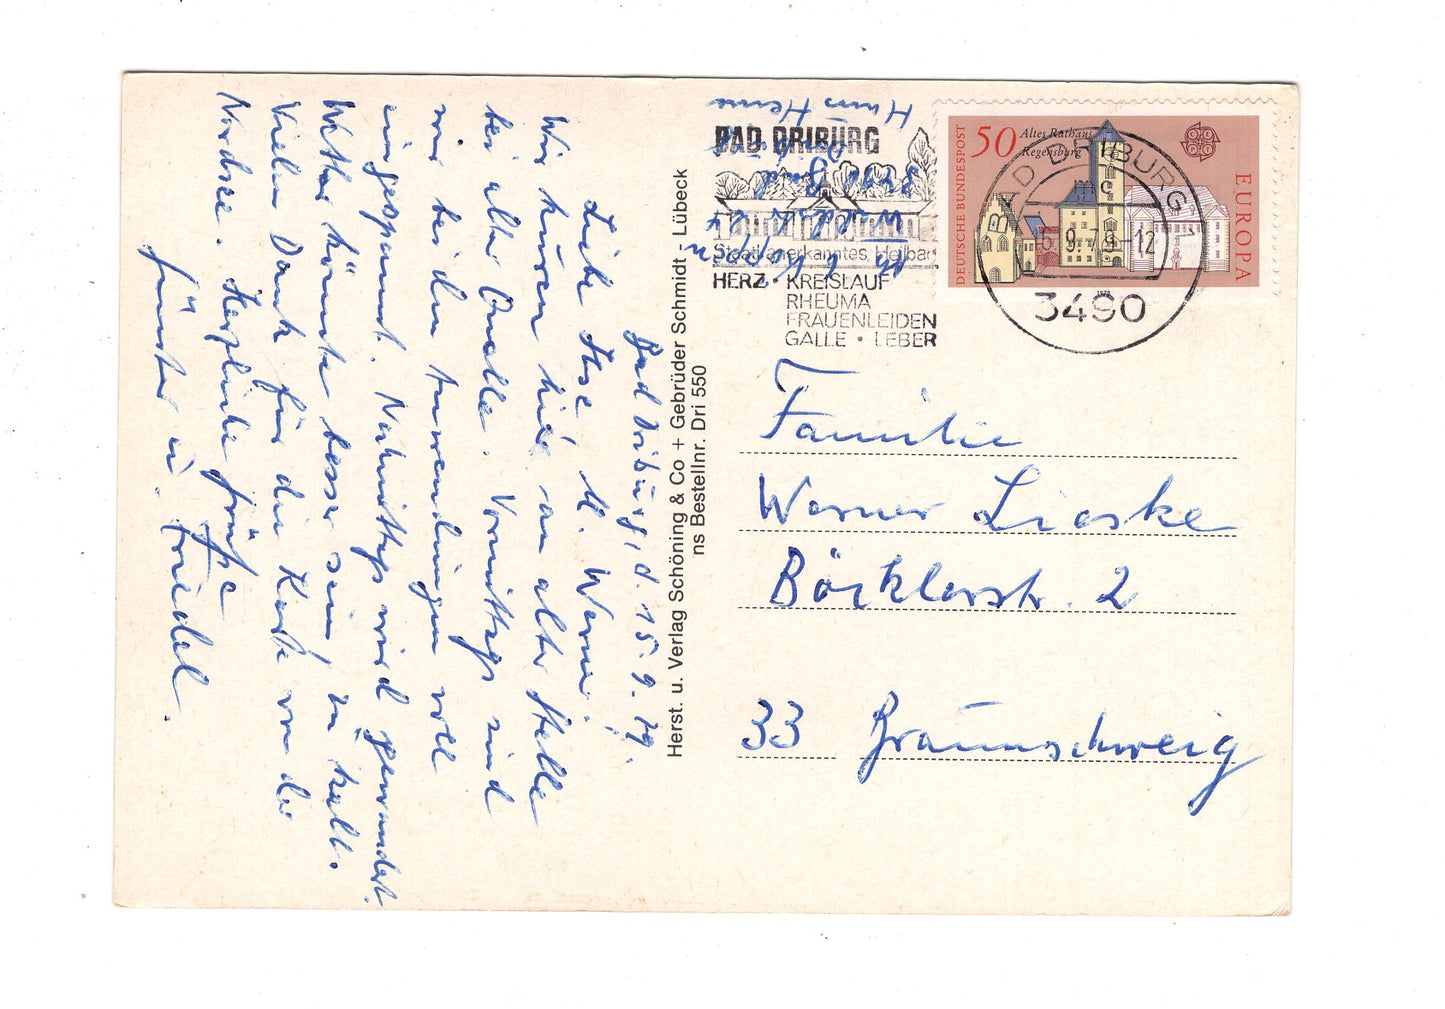 Bad Driburg, d. 15.9.79.
Liebe Ilse u. Werner.
Wir kuren hier an alter Stelle
bei alter Quelle. Vormittags sind
wir bei den Anwendungen voll
eingespannt. Nachmittags wird gewandert.
Wetter könnte besser sein, zu kalt.
Vielen Dank für die Karte von der
Nordsee. Herzliche Grüße
Günter u. Friedel.
Herst. u. Verlag Schöning & Co + Gebrüder Schmidt - Lübeck
ns Bestellnr. Dri 550
3490 Bad
Haus Henne
BAD DRIBURG
Staatl. anerkanntes Heilbad
HERZ · KREISLAUF
RHEUMA
FRAUENLEIDEN
GALLE · LEBER
DEUTSCHE BUNDESPOST
50
Altes Rathaus
Regensburg
EUROPA
1978
BAD DRIBURG
3490
Familie
Werner Lieske
Böcklerstr. 2
33 Braunschweig